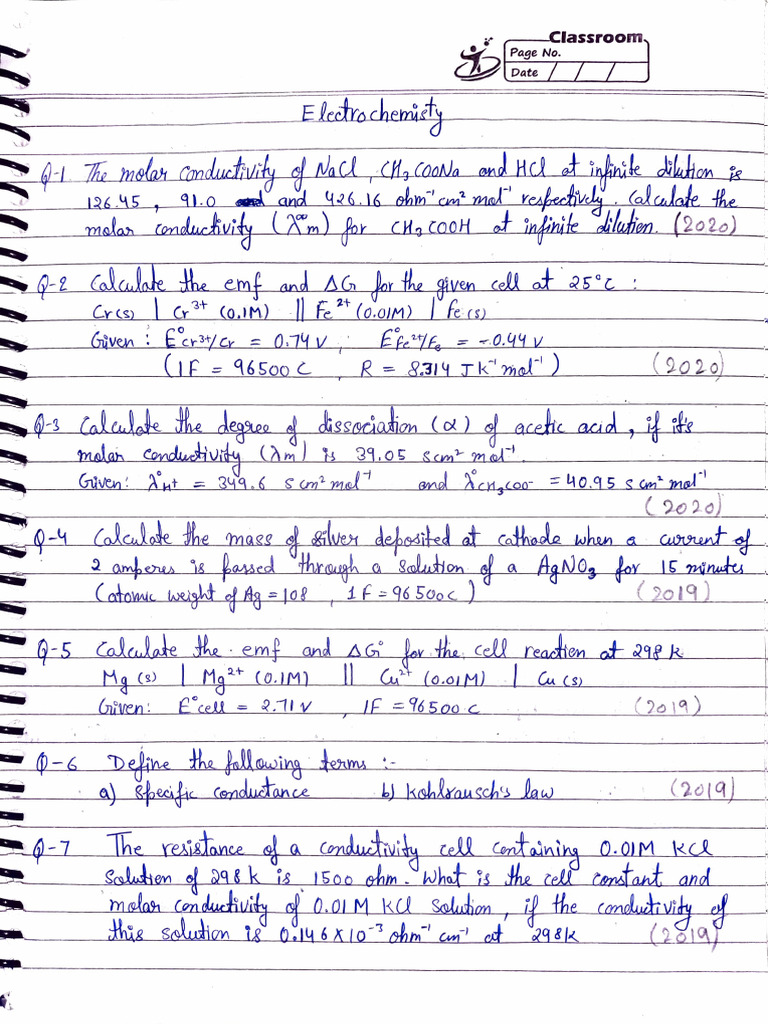 Classroom
Page No.
Date / / /
Electrochemisty
Q-1 The molar conductivity of NaCl, CH3COONa and HCl at infinite dilution is
126.45, 91.0 and and 426.16 ohm⁻¹ cm² mol⁻¹ respectively. Calculate the
molar conductivity (λ∞m) for CH3COOH at infinite dilution. (2020)
Q-2 Calculate the emf and ΔG for the given cell at 25°C :
Cr(s) | Cr³⁺ (0.1M) || Fe²⁺ (0.01M) | Fe(s)
Given : E°cr³⁺/Cr = 0.74 V ; E°Fe²⁺/Fe = -0.44 V
(1F = 96500 C , R = 8.314 JK⁻¹ mol⁻¹) (2020)
Q-3 Calculate the degree of dissociation (α) of acetic acid, if it's
molar conductivity (λm) is 39.05 scm² mol⁻¹.
Given: λ°H⁺ = 349.6 s cm² mol⁻¹ and λ°CH3COO⁻ = 40.95 s cm² mol⁻¹
(2020)
Q-4 Calculate the mass of silver deposited at cathode when a current of
2 amperes is passed through a solution of a AgNO3 for 15 minutes
(atomic weight of Ag = 108 , 1F = 96500C) (2019)
Q-5 Calculate the emf and ΔG° for the cell reaction at 298k
Mg(s) | Mg²⁺ (0.1M) || Cu²⁺ (0.01M) | Cu(s)
Given: E°cell = 2.71 V , 1F = 96500 C (2019)
Q-6 Define the following terms :-
a) Specific conductance b) Kohlrausch's law (2019)
Q-7 The resistance of a conductivity cell containing 0.01M KCl
solution of 298k is 1500 ohm. What is the cell constant and
molar conductivity of 0.01 M KCl solution, if the conductivity of
this solution is 0.146×10⁻³ ohm⁻¹ cm⁻¹ at 298k (2019)